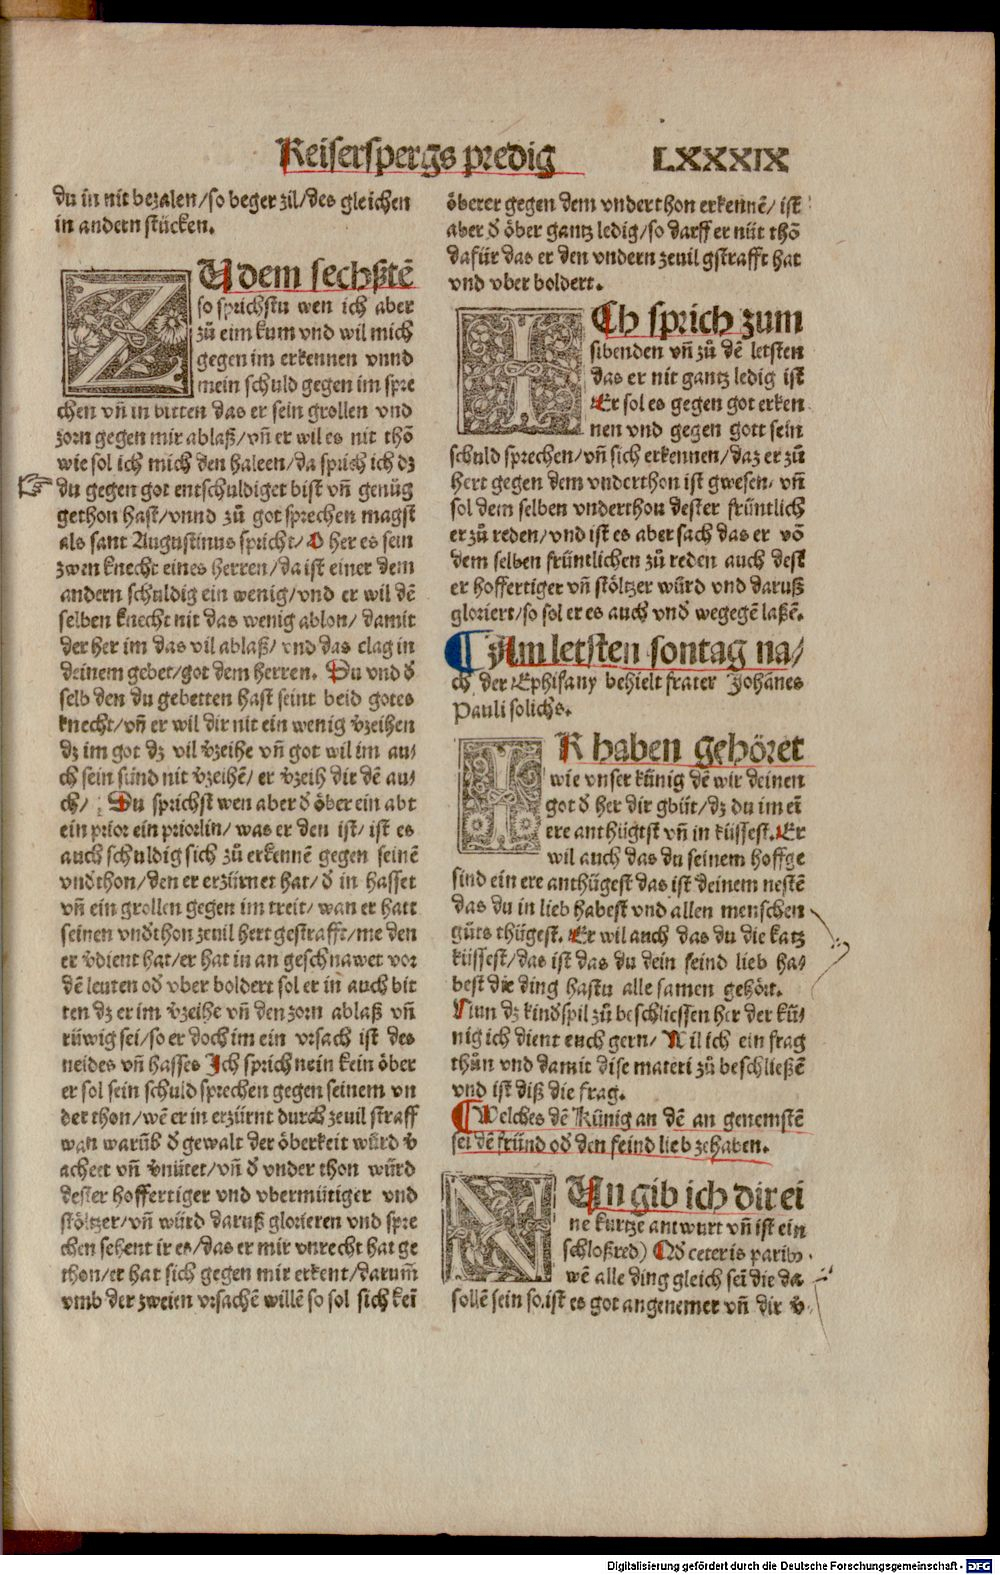 Keiserspergs predig LXXXIX
du in nit bezalen/so beger zil/des gleichen
in andern stücken.
ZU dem sechßtē
so sprichstu wen ich aber
zů eim kum vnd wil mich
gegen im erkennen vnnd
mein schuld gegen im spre
chen vñ in bitten das er sein grollen vnd
zorn gegen mir ablaß/vñ er wil es nit thō
wie sol ich mich den halten/da sprich ich dz
du gegen got entschuldiget bist vñ genůg
gethon hast/vnnd zů got sprechen magst
als sant Augustinus spricht/ O her es sein
zwen knecht eines herren/da ist einer dem
andern schuldig ein wenig/vnd er wil dē
selben knecht nit das wenig ablon/damit
der her im das vil ablaß/vnd das clag in
deinem gebet/got dem herren. Du vnd d̄
selb den du gebetten hast seint beid gotes
knecht/vñ er wil dir nit ein wenig v̄zeihen
dz im got dz vil v̄zeihe vñ got wil im au/
ch sein sünd nit v̄zeihē/er v̄zeih dir dē au/
ch/ Du sprichst wen aber d̄ öber ein abt
ein prior ein priorlin/was er den ist/ist es
auch schuldig sich zů erkennē gegen seinē
vnd̄thon/den er erzürnet hat/d̄ in hasset
vñ ein grollen gegen im treit/wan er hatt
seinen vnd̄thon zeuil hert gestrafft/me den
er v̄dient hat/er hat in an geschnawet vor
dē leuten od̄ vber boldert sol er in auch bit
ten dz er im v̄zeihe vñ den zorn ablaß vñ
růwig sei/so er doch im ein vrsach ist des
neides vñ hasses Ich sprich nein kein öber
er sol sein schuld sprechen gegen seinem vn
der thon/wē er in erzürnt durch zeuil straff
wan warūb d̄ gewalt der öberkeit würd v̄
achtet vñ v̄nütet/vñ d̄ vnder thon würd
dester hoffertiger vnd vbermütiger vnd
stöltzer/vñ würd daruß glorieren vnd spre
chen sehent ir es/das er mir vnrecht hat ge
thon/er hat sich gegen mir erkent/darum̄
vmb der zweien vrsachē willē so sol sich kei
öberer gegen dem vnderthon erkennē/ist
aber d̄ öber gantz ledig/so darff er nüt thō
dafür das er den vndern zeuil gstrafft hat
vnd vber boldert.
ICh sprich zum
sibenden vñ zů dē letsten
das er nit gantz ledig ist
Er sol es gegen got erken
nen vnd gegen gott sein
schuld sprechen/vñ sich erkennen/daz er zů
hert gegen dem vnderthon ist gwesen/vñ
sol dem selben vnderthon dester früntlich
er zů reden/vnd ist es aber sach das er vō
dem selben früntlichen zů reden auch dest
er hoffertiger vñ stöltzer würd vnd daruß
gloriert/so sol er es auch vnd̄ wegegē laßē.
Am letsten sontag na/
ch der Ephifany behielt frater Johānes
Pauli solichs.
IR haben gehöret
wie vnser künig dē wir deinen
got d̄ her dir gbüt/dz du im ei
ere anthügtst vñ in küssest. Er
wil auch das du seinem hoffge
sind ein ere anthügest das ist deinem nestē
das du in lieb habest vnd allen menschen
gůts thügest. Er wil auch das du die katz
küssest/das ist das du dein feind lieb ha/
best die ding hastu alle samen gehört.
Nun dz kindspil zů beschliessen her der kü/
nig ich dient euch gern/ Wil ich ein frag
thůn vnd damit dise materi zů beschließē
vnd ist diß die frag.
Welches dē Künig an dē an genemstē
sei dē fründ od̄ den feind lieb ze haben.
NUn gib ich dir ei
ne kurtze antwurt vñ ist ein
schloßred) Od̄ ceteris parib9.
wē alle ding gleich sei die da
sollē sein so ist es got angenemer vñ dir v̄
Digitalisierung gefördert durch die Deutsche Forschungsgemeinschaft - DFG